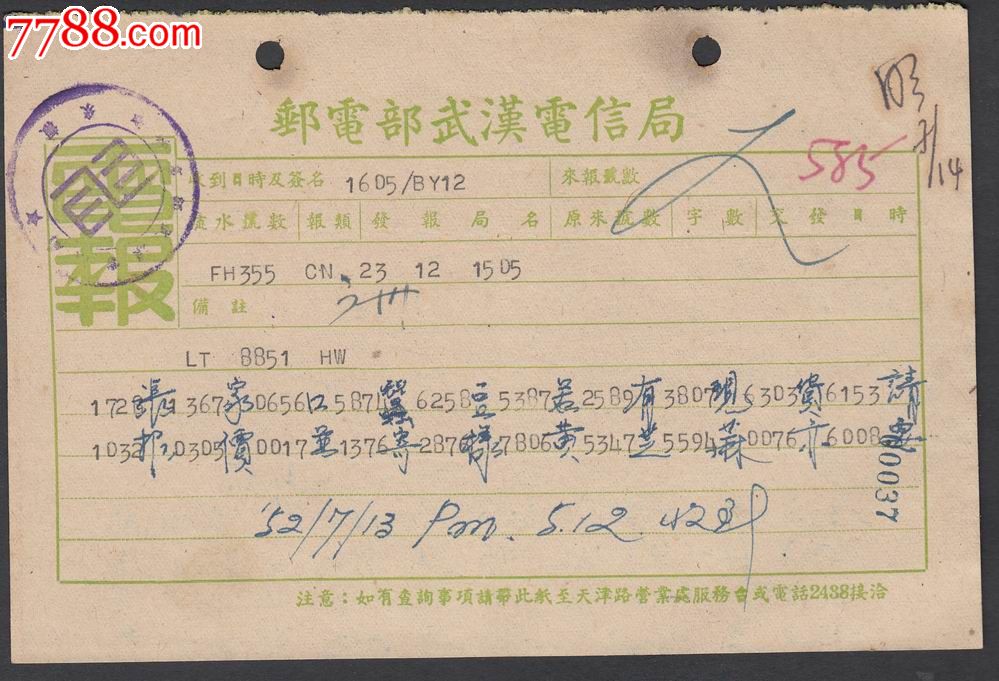 7788.com
郵電部武漢電信局
電報
收到日時及簽名 1605/BY12 來報號數 585
流水號數 報類 發報局名 原來號數 字數 交發日時
FH355 CN 23 12 1505
備註
LT 8851 HW
1728張 1367家 0656口 5871蠶 6258豆 5387若 2589有 3807現 6303貨 6153請
1032 0303價 0017並 1376寄 2876樣 7806黃 5347芝 5594蔴 0076亦 6008
00037
'52/7/13 Pm. 5.12
注意：如有查詢事項請帶此紙至天津路營業處服務台或電話2438接洽